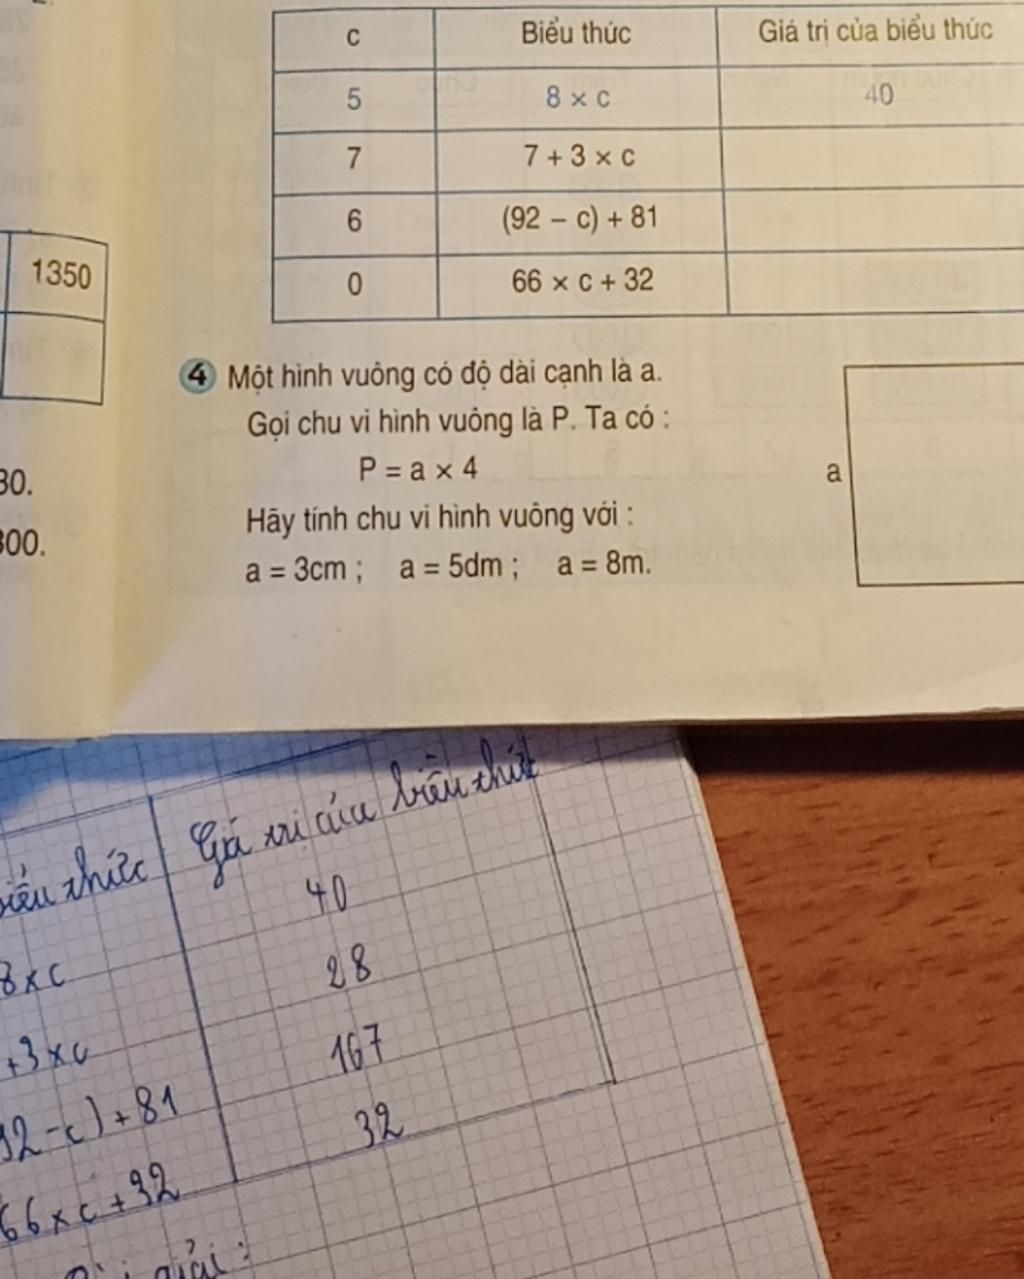 c Biểu thức Giá trị của biểu thức
5 8 × c 40
7 7 + 3 × c
6 (92 – c) + 81
0 66 × c + 32
1350
30.
300.
4 Một hình vuông có độ dài cạnh là a.
Gọi chu vi hình vuông là P. Ta có :
P = a × 4
a
Hãy tính chu vi hình vuông với :
a = 3cm ; a = 5dm ; a = 8m.
biểu thức Giá trị của biểu thức
40
8 x c 28
+3 x c 167
92 - c) + 81 32
66 x c + 32
Bài giải :